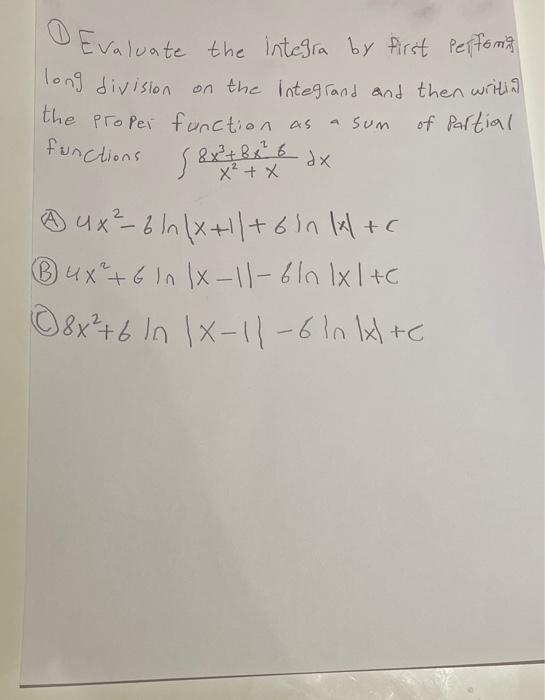 ① Evaluate the integra by first Perfomg
long division on the Integrand and then writing
the proper function as a sum of Partial
functions ∫ 8x³+8x² 6 / x²+x dx
Ⓐ 4x²-6 ln|x+1|+6 ln |x| +c
Ⓑ 4x²+6 ln |x-1|-6 ln |x|+c
Ⓒ 8x²+6 ln |x-1| -6 ln |x| +c